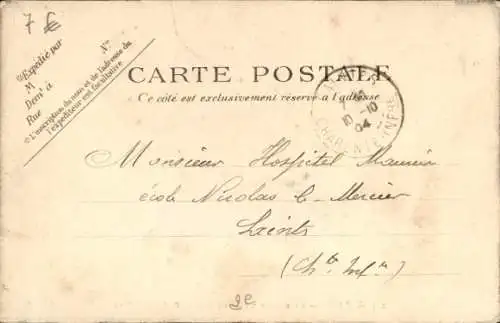 7 €
Expédié par
M
N°
Demt à
Rue
L'inscription du nom et de l'adresse de
l'expéditeur est facultative
CARTE POSTALE
Ce côté est exclusivement réservé à l'adresse
10 -10
04
CHARENTE INFRE
Monsieur Hospitel Maurice
école Nicolas le Mercier
Saintes
(Chte Infre)